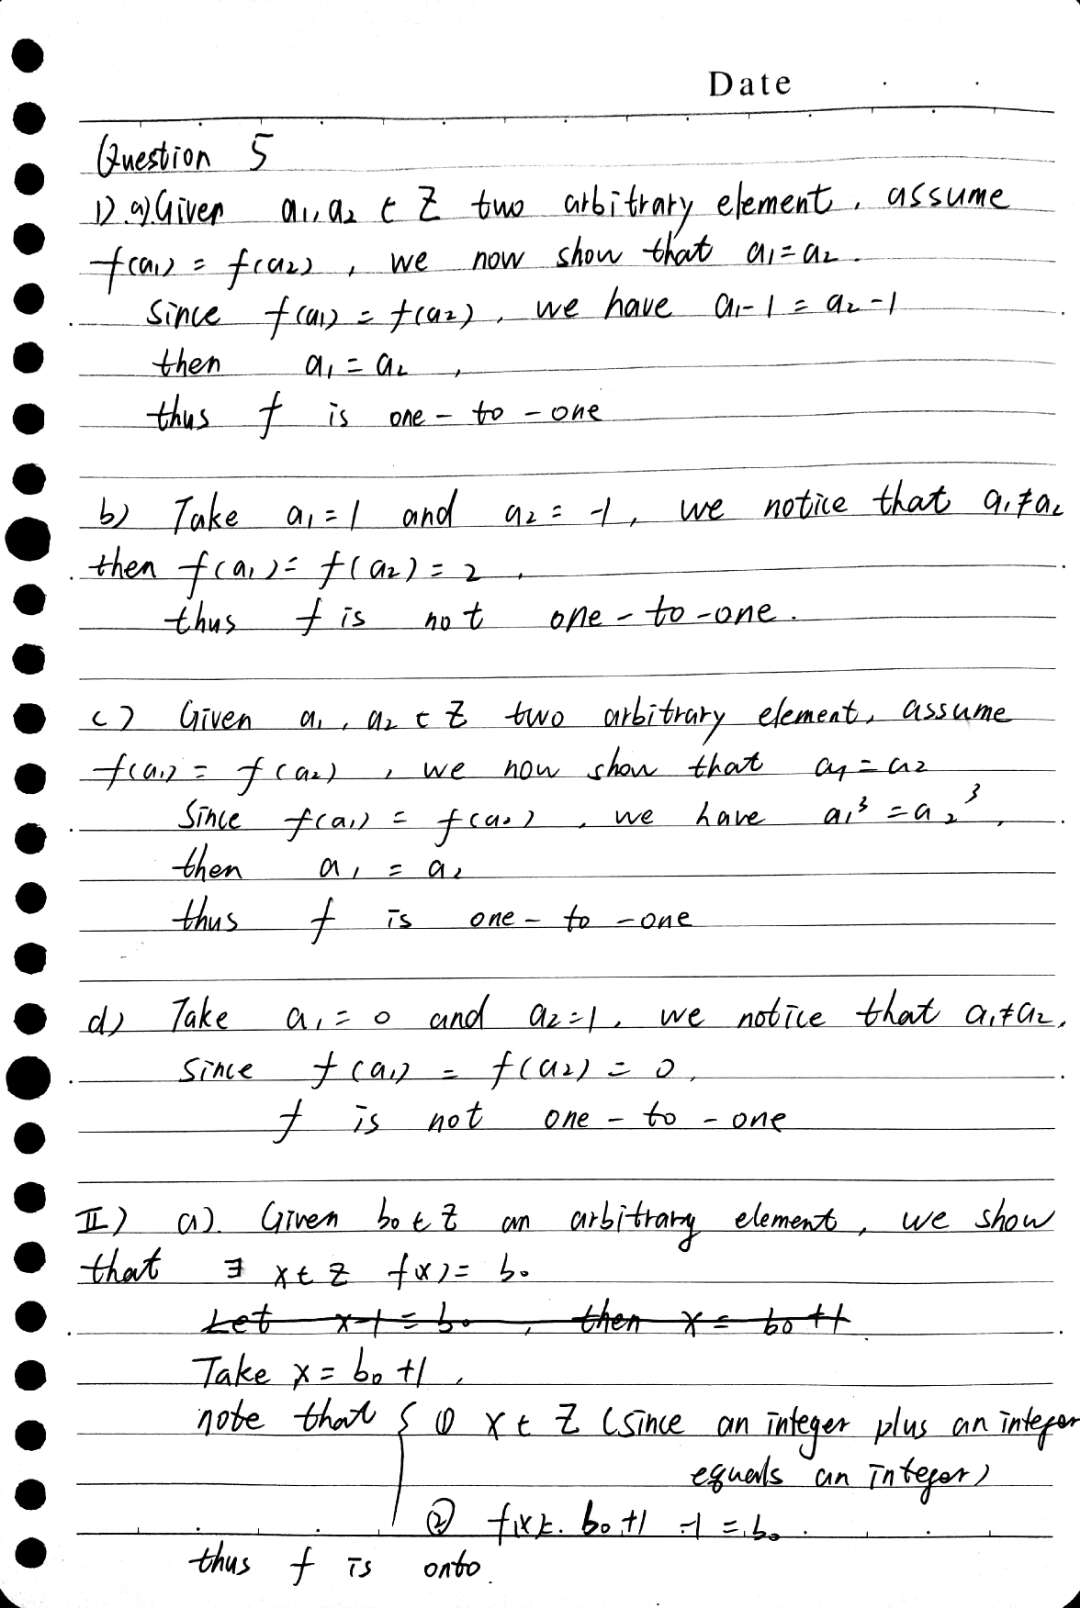 Date
Question 5
I) a) Given a₁, a₂ ∈ Z two arbitrary element, assume
f(a₁) = f(a₂), we now show that a₁=a₂.
Since f(a₁) = f(a₂), we have a₁-1 = a₂-1
then a₁ = a₂,
thus f is one-to-one
b) Take a₁=1 and a₂=-1, we notice that a₁≠a₂
then f(a₁)= f(a₂)=2,
thus f is not one-to-one.
c) Given a₁, a₂ ∈ Z two arbitrary element, assume
f(a₁) = f(a₂), we now show that a₁=a₂
Since f(a₁) = f(a₂), we have a₁³ = a₂³,
then a₁ = a₂
thus f is one-to-one
d) Take a₁=0 and a₂=1, we notice that a₁≠a₂,
Since f(a₁) = f(a₂) = 0,
f is not one-to-one
II) a). Given b₀ ∈ Z an arbitrary element, we show
that ∃ x∈Z f(x)= b₀
Let x-1 = b₀, then x = b₀+1
Take x = b₀+1,
note that { ① x ∈ Z (Since an integer plus an integer
equals an integer)
② f(x)= b₀+1 -1 = b₀.
thus f is onto.